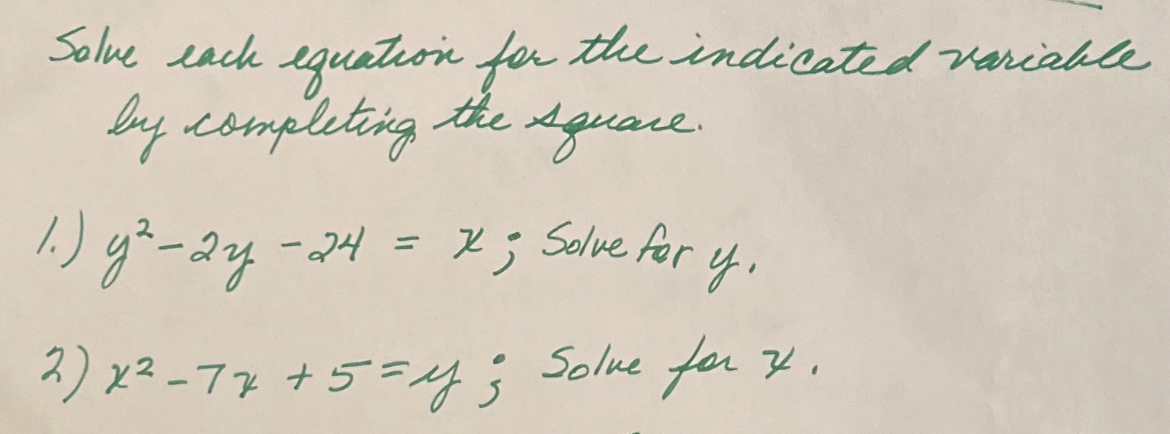 Solve each equation for the indicated variable
by completing the square.
1.) y² - 2y - 24 = x; Solve for y.
2) x² - 7x + 5 = y; Solve for x.